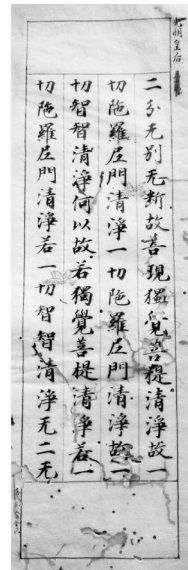 光明皇后
二分无別无断故善現獨覺菩提清淨故一
切陁羅尼門清淨一切陁羅尼門清淨故一
切智智清淨何以故若獨覺菩提清淨若一
切陁羅尼門清淨若一切智智清淨无二无